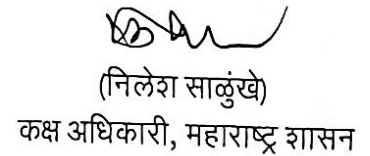 (निलेश साळुंखे)
कक्ष अधिकारी, महाराष्ट्र शासन